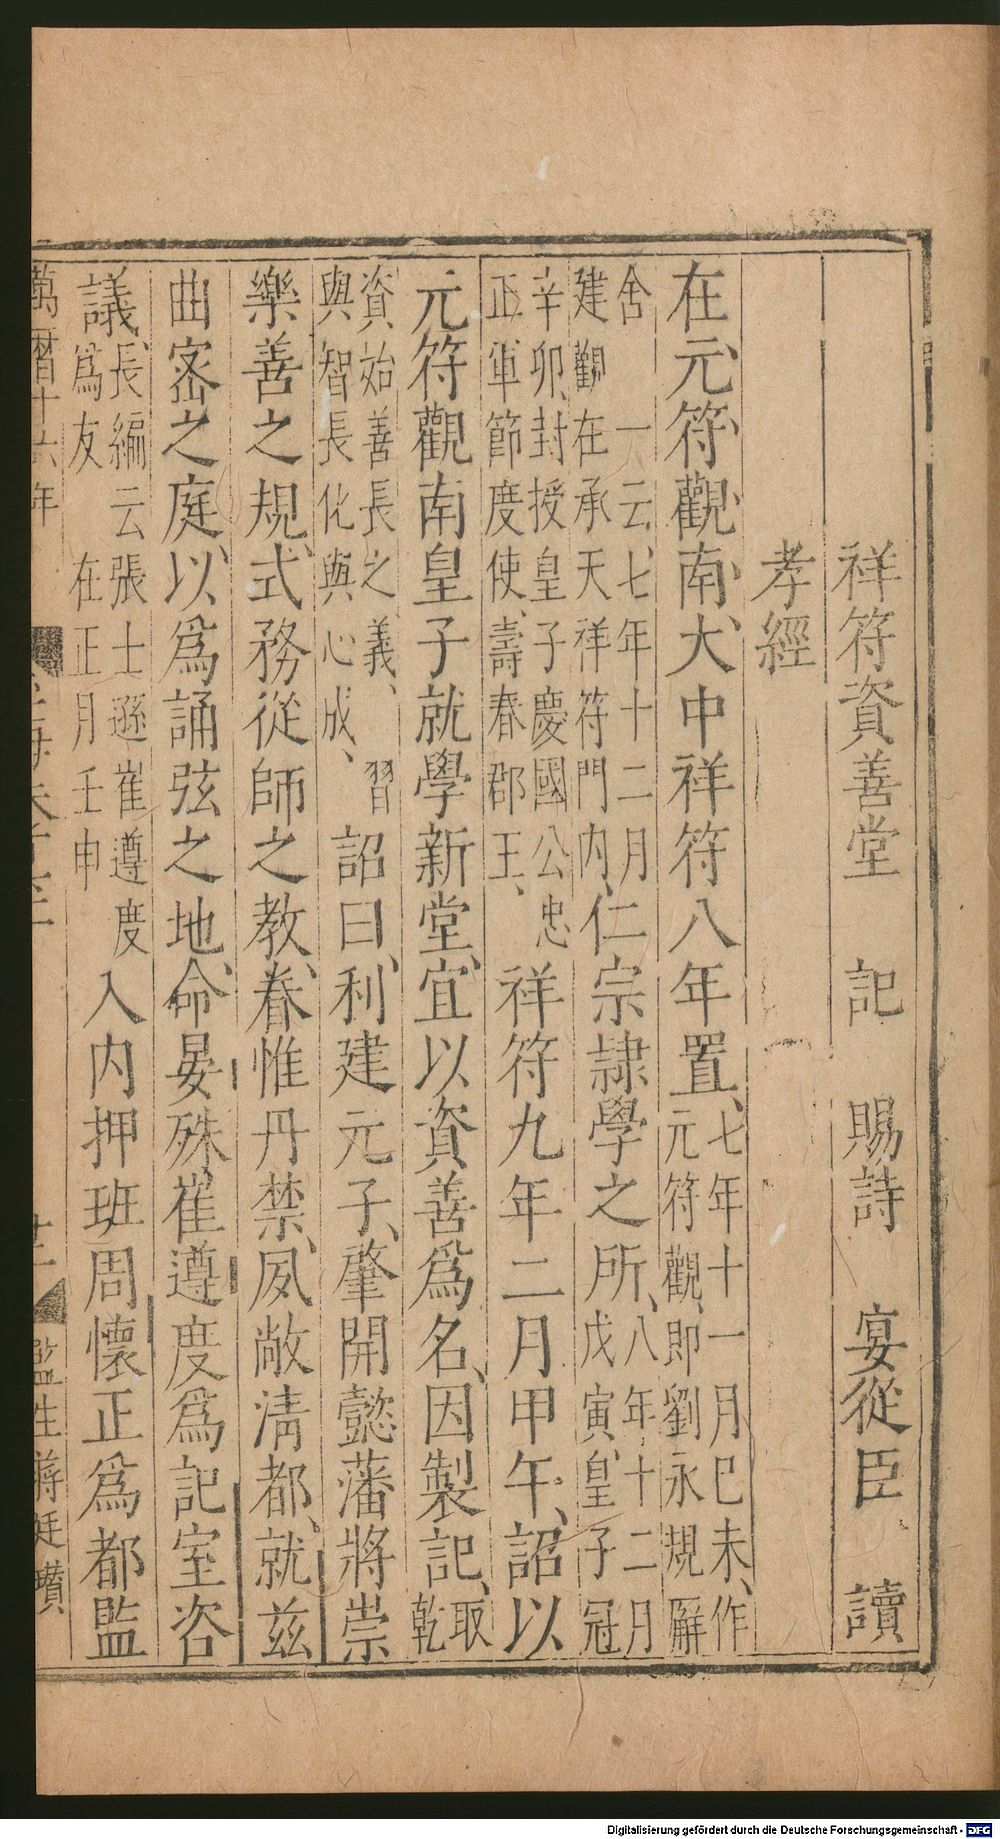 祥符資善堂　記　賜詩　宴從臣　讀
孝經
在元符觀南、大中祥符八年置、七年十一月己未、作元符觀、即劉永規廨
舍、一云、七年十二月建觀在承天祥符門内、仁宗隷學之所、八年十二月戊寅、皇子冠
辛卯、封授皇子慶國公忠正軍節度使、壽春郡王、祥符九年二月甲午、詔以
元符觀南皇子就學新堂、宜以資善爲名、因製記、取乾
資始善長之義、習與智長化與心成、詔曰、利建元子、肇開懿藩將崇
樂善之規、式務從師之教、眷惟丹禁、夙敞清都、就兹
曲宻之庭、以爲誦弦之地、命晏殊崔遵度爲記室咨
議、長編云張士遜崔遵度爲友　在正月壬申入内押班周懷正爲都監
萬曆十六年
監生蔣廷瓚
Digitalisierung gefördert durch die Deutsche Forschungsgemeinschaft - DFG